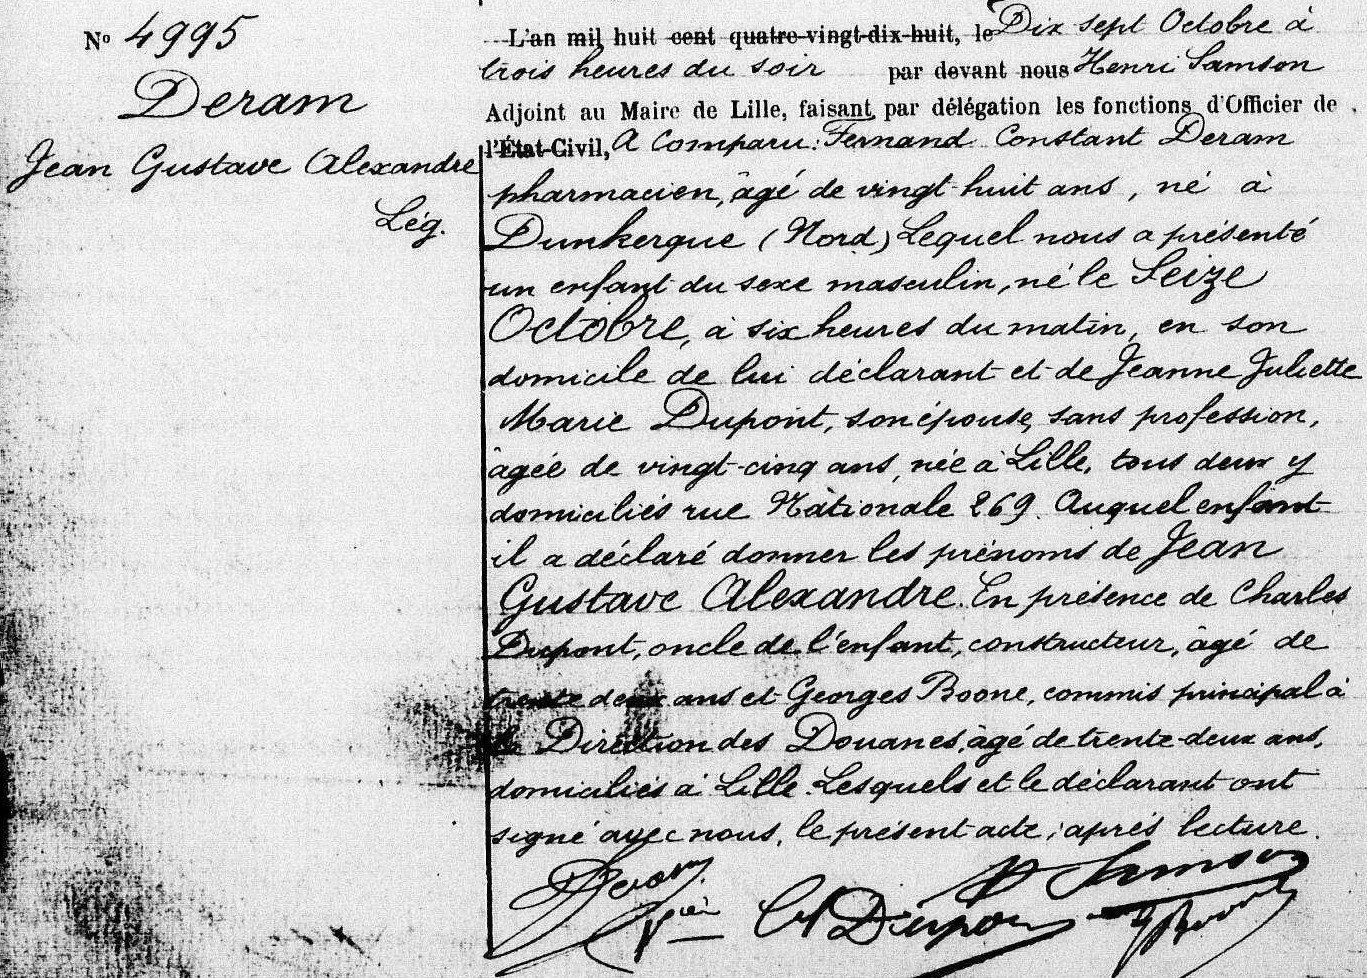 Nº 4995
Deram
Jean Gustave Alexandre
Lég.
L'an mil huit cent quatre-vingt-dix-huit, le Dix sept Octobre à
trois heures du soir par devant nous Henri Samson
Adjoint au Maire de Lille, faisant par délégation les fonctions d'Officier de
l'État-Civil, A Comparu : Fernand Constant Deram
pharmacien, âgé de vingt huit ans, né à
Dunkerque (Nord) Lequel nous a présenté
un enfant du sexe masculin, né le Seize
Octobre, à six heures du matin, en son
domicile de lui déclarant et de Jeanne Juliette
Marie Dupont, son épouse, sans profession,
âgée de vingt-cinq ans, née à Lille, tous deux y
domiciliés rue Nationale 269. Auquel enfant
il a déclaré donner les prénoms de Jean
Gustave Alexandre. En présence de Charles
Dupont, oncle de l'enfant, constructeur, âgé de
trente deux ans et Georges Boone, commis principal à
la Direction des Douanes, âgé de trente-deux ans,
domiciliés à Lille. Lesquels et le déclarant ont
signé avec nous, le présent acte, après lecture.
Deram
H Samson
Ch Dupont
G Boone